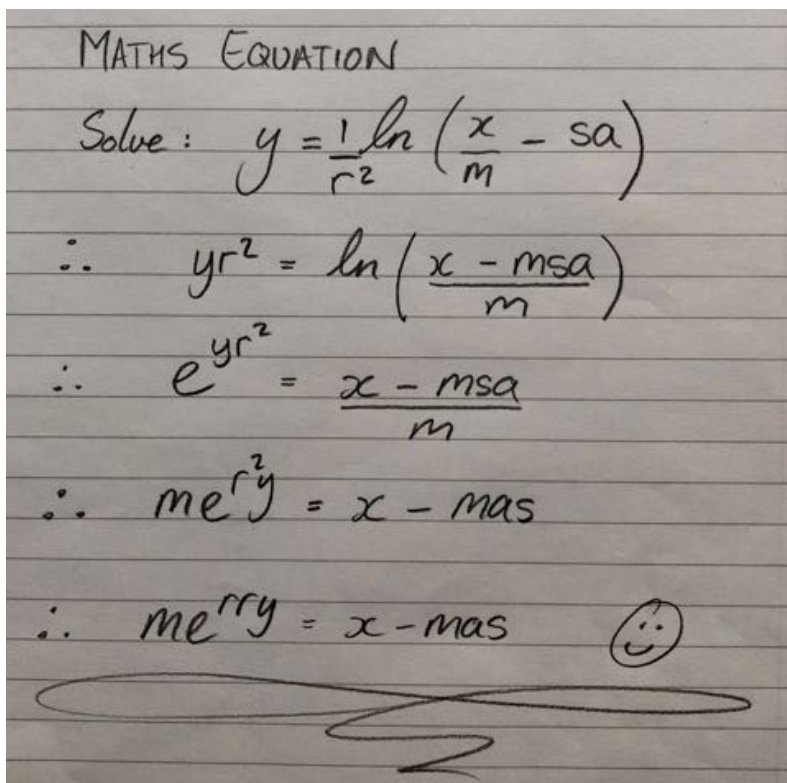 MATHS EQUATION
Solve : y = 1/r² ln (x/m - sa)
∴ yr² = ln (x - msa/m)
∴ e^yr² = x - msa/m
∴ me^r²y = x - mas
∴ me^rry = x - mas